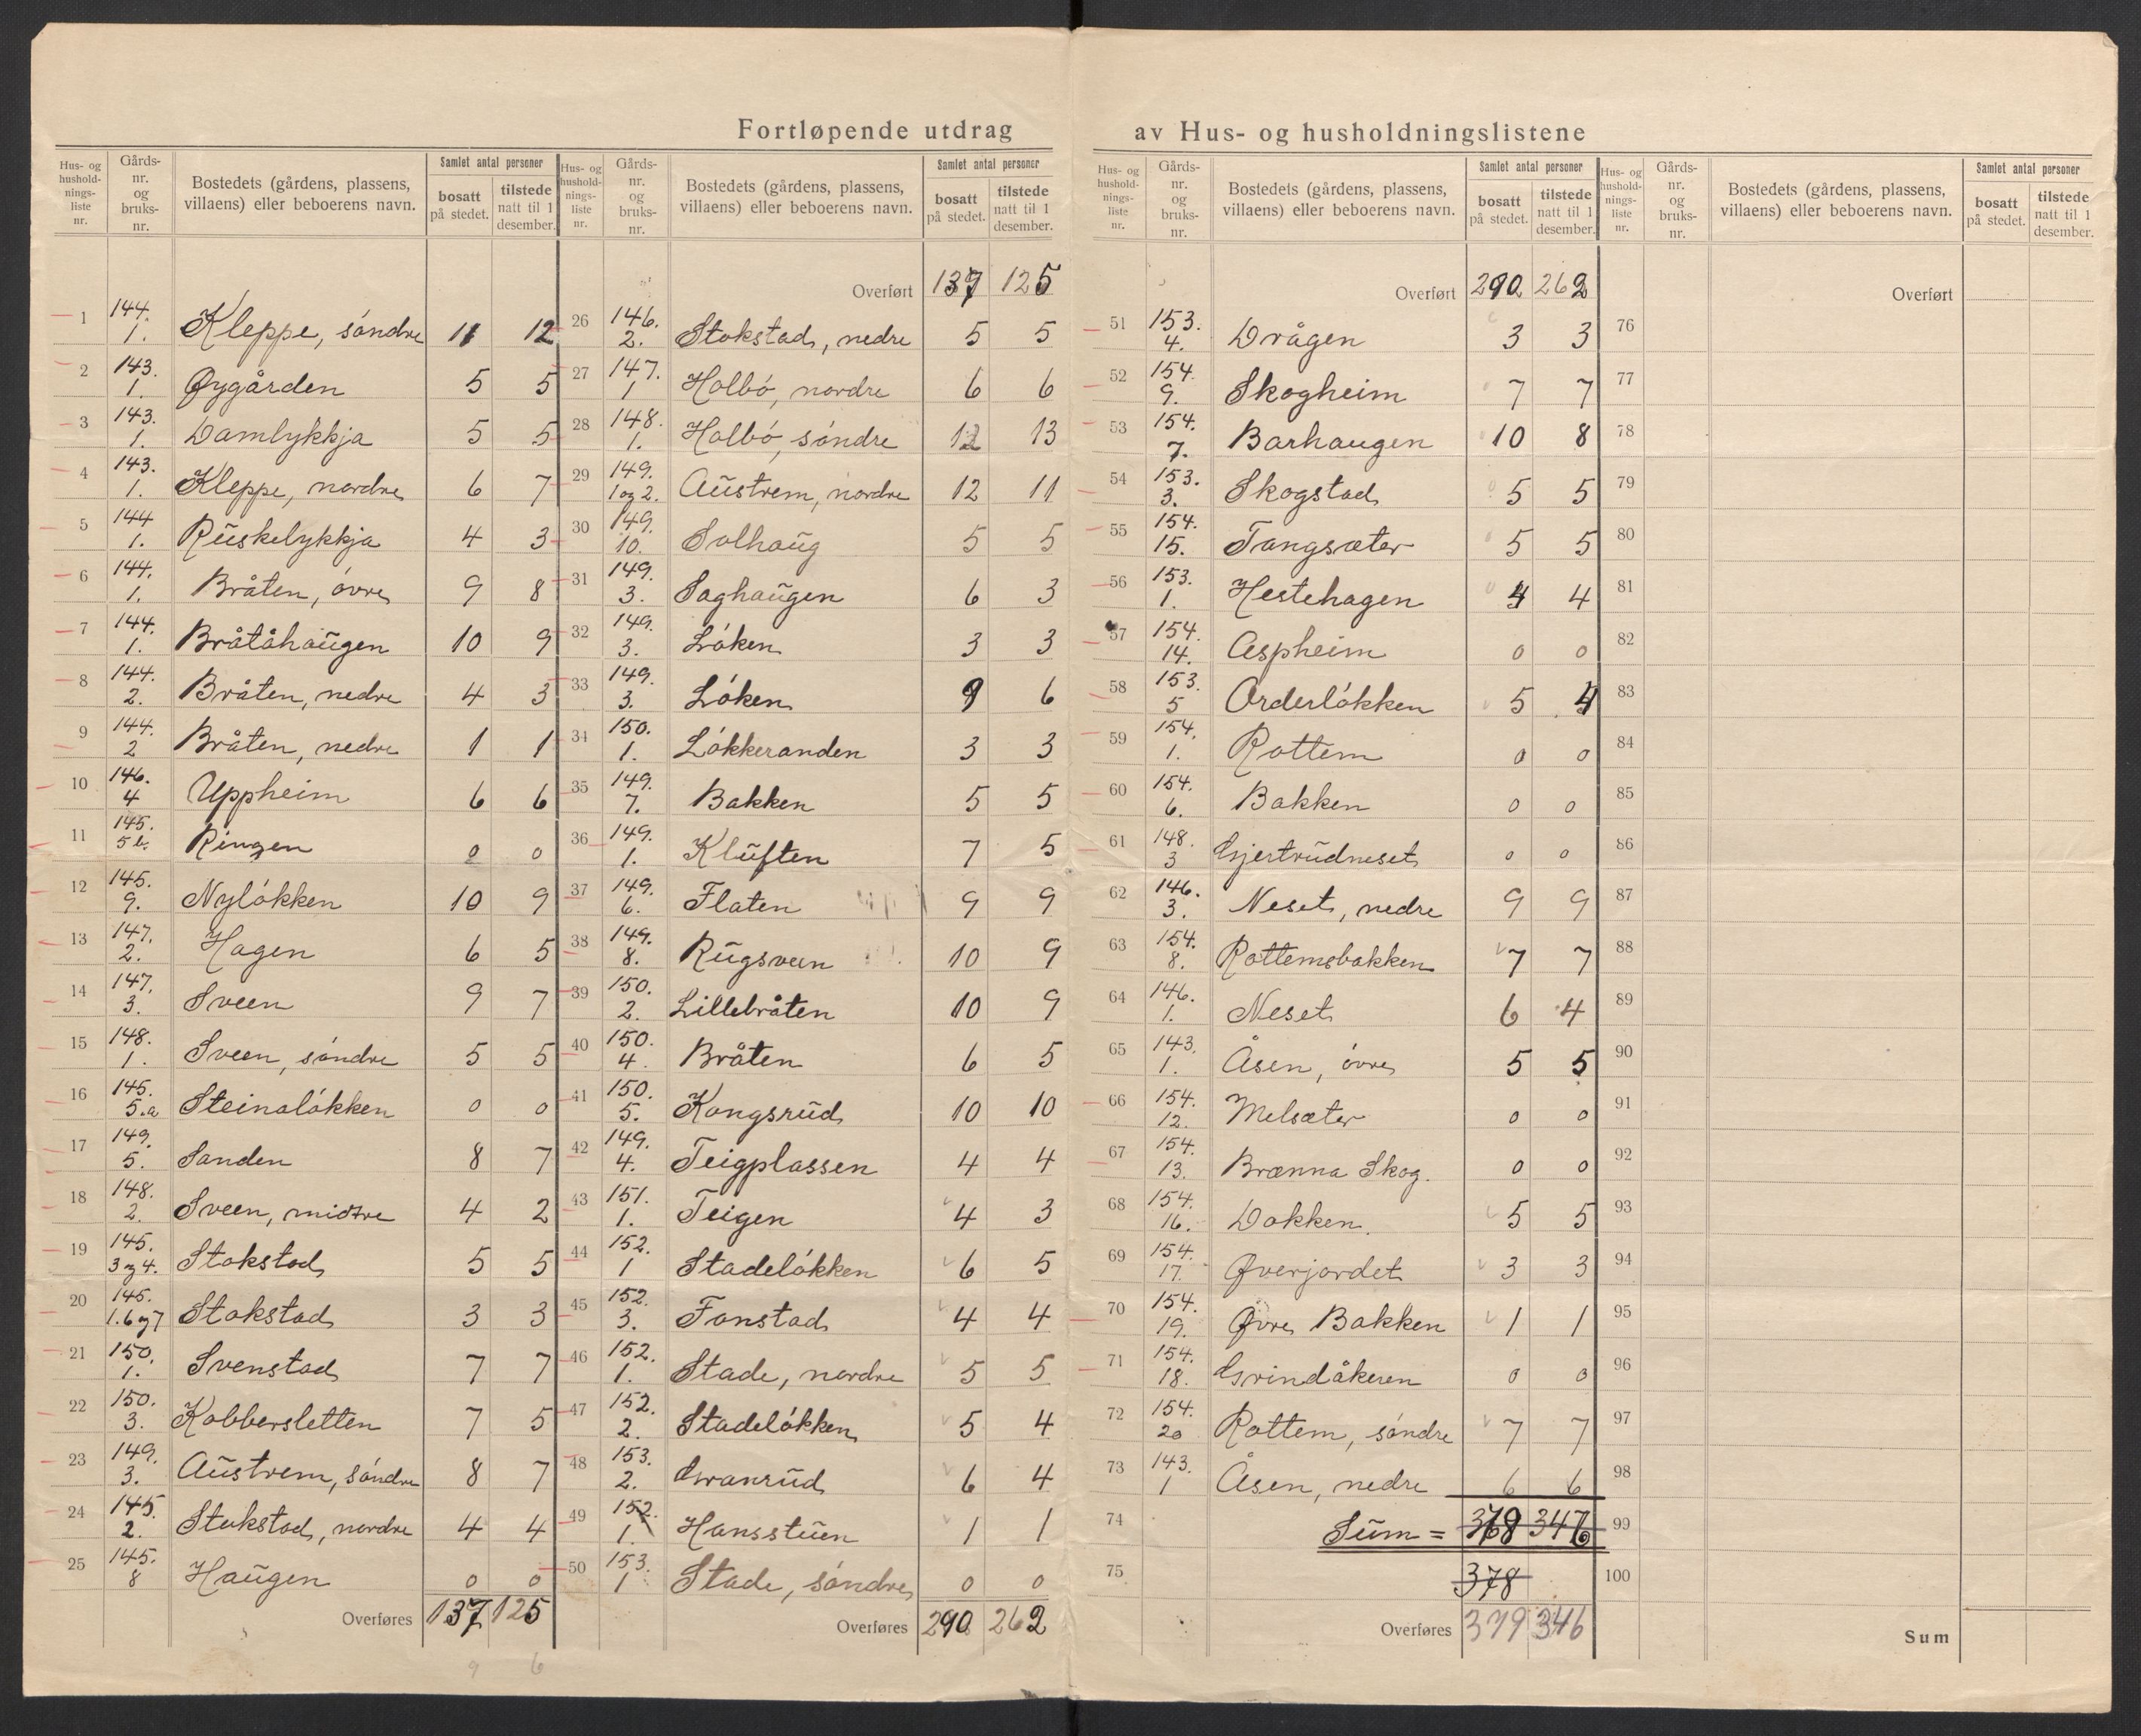 Fortløpende utdrag av Hus- og husholdningslistene
Hus- og hushold-nings-liste nr. | Gårds-nr. og bruks-nr. | Bostedets (gårdens, plassens, villaens) eller beboerens navn. | Samlet antal personer | bosatt på stedet. | tilstede natt til 1 desember.
1 | 144. 1. | Kleppe, söndre | 11 | 12
2 | 143. 1. | Øygården | 5 | 5
3 | 143. 1. | Damlykkja | 5 | 5
4 | 143. 1. | Kleppe, nordre | 6 | 7
5 | 144 1. | Rüskelykkja | 4 | 3
6 | 144. 1. | Bråten, övre | 9 | 8
7 | 144. 1. | Bråtåhaügen | 10 | 9
8 | 144. 2. | Bråten, nedre | 4 | 3
9 | 144. 2 | Bråten, nedre | 1 | 1
10 | 146. 4 | Uppheim | 6 | 6
11 | 145. 5 b. | Ringen | 0 | 0
12 | 145. 9. | Nylökken | 10 | 9
13 | 147. 2. | Hagen | 6 | 5
14 | 147. 3. | Sveen | 9 | 7
15 | 148. 1. | Sveen, söndre | 5 | 5
16 | 145. 5.a | Steinalökken | 0 | 0
17 | 149. 5. | Sanden | 8 | 7
18 | 148. 2. | Sveen, midtre | 4 | 2
19 | 145. 3 og 4. | Stokstad | 5 | 5
20 | 145. 1. 6 og 7 | Stokstad | 3 | 3
21 | 150. 1. | Svenstad | 7 | 7
22 | 150. 3. | Kobbersletten | 7 | 5
23 | 149. 3. | Aüstrem, söndre | 8 | 7
24 | 145. 2. | Stokstad, nordre | 4 | 4
25 | 145. 8 | Haügen | 0 | 0
Overføres 137 125
9 6
Hus- og hushold-nings-liste nr. | Gårds-nr. og bruks-nr. | Bostedets (gårdens, plassens, villaens) eller beboerens navn. | Samlet antal personer | bosatt på stedet. | tilstede natt til 1 desember.
Overført 137 125
26 | 146. 2. | Stokstad, nedre | 5 | 5
27 | 147. 1 | Holbö, nordre | 6 | 6
28 | 148. 1. | Holbö, söndre | 12 | 13
29 | 149. 1 og 2. | Aüstrem, nordre | 12 | 11
30 | 149. 10. | Solhaüg | 5 | 5
31 | 149. 3. | Saghaügen | 6 | 3
32 | 149. 3. | Löken | 3 | 3
33 | 149. 3. | Löken | 9 | 6
34 | 150. 1. | Lökkeranden | 3 | 3
35 | 149. 7. | Bakken | 5 | 5
36 | 149. 1. | Klüften | 7 | 5
37 | 149. 6. | Flaten | 9 | 9
38 | 149. 8. | Rügsveen | 10 | 9
39 | 150. 2. | Lillebråten | 10 | 9
40 | 150. 4. | Bråten | 6 | 5
41 | 150. 5. | Kongsrüd | 10 | 10
42 | 149. 4. | Teigplassen | 4 | 4
43 | 151. 1. | Teigen | 4 | 3
44 | 152. 1 | Stadelökken | 6 | 5
45 | 152. 3. | Fonstad | 4 | 4
46 | 152. 1. | Stade, nordre | 5 | 5
47 | 152. 2. | Stadelökken | 5 | 4
48 | 153. 2. | 6 | 4
49 | 152. 1. | Hansstüen | 1 | 1
50 | 153. 1 | Stade, söndre | 0 | 0
Overføres 290 262
Hus- og hushold-nings-liste nr. | Gårds-nr. og bruks-nr. | Bostedets (gårdens, plassens, villaens) eller beboerens navn. | Samlet antal personer | bosatt på stedet. | tilstede natt til 1 desember.
Overført 290 262
51 | 153. 4. | Drågen | 3 | 3
52 | 154. 9. | Skogheim | 7 | 7
53 | 154. 7. | Barhaugen | 10 | 8
54 | 153. 3. | Skogstad | 5 | 5
55 | 154. 15. | Tangsæter | 5 | 5
56 | 153. 1. | Hestehagen | 4 | 4
57 | 154. 14. | Aspheim | 0 | 0
58 | 153. 5 | Orderlökken | 5 | 4
59 | 154. 1. | Rottem | 0 | 0
60 | 154. 6. | Bakken | 0 | 0
61 | 148. 3 | Gjertrüdneset | 0 | 0
62 | 146. 3. | Neset, nedre | 9 | 9
63 | 154. 8. | Rottemsbakken | 7 | 7
64 | 146. 1. | Neset | 6 | 4
65 | 143. 1. | Åsen, övre | 5 | 5
66 | 154. 12. | Melsæter | 0 | 0
67 | 154. 13. | Brænna Skog. | 0 | 0
68 | 154. 16. | Dokken. | 5 | 5
69 | 154. 17. | Øverjordet | 3 | 3
70 | 154. 19. | Øvre Bakken | 1 | 1
71 | 154. 18. | Grindåkeren | 0 | 0
72 | 154. 20 | Rottem, söndre | 7 | 7
73 | 143. 1 | Åsen, nedre | 6 | 6
74 | Süm = 378 346
75 | 378
Overføres 379 346
Hus- og hushold-nings-liste nr. | Gårds-nr. og bruks-nr. | Bostedets (gårdens, plassens, villaens) eller beboerens navn. | Samlet antal personer | bosatt på stedet. | tilstede natt til 1 desember.
Overført
76
77
78
79
80
81
82
83
84
85
86
87
88
89
90
91
92
93
94
95
96
97
98
99
100
Sum